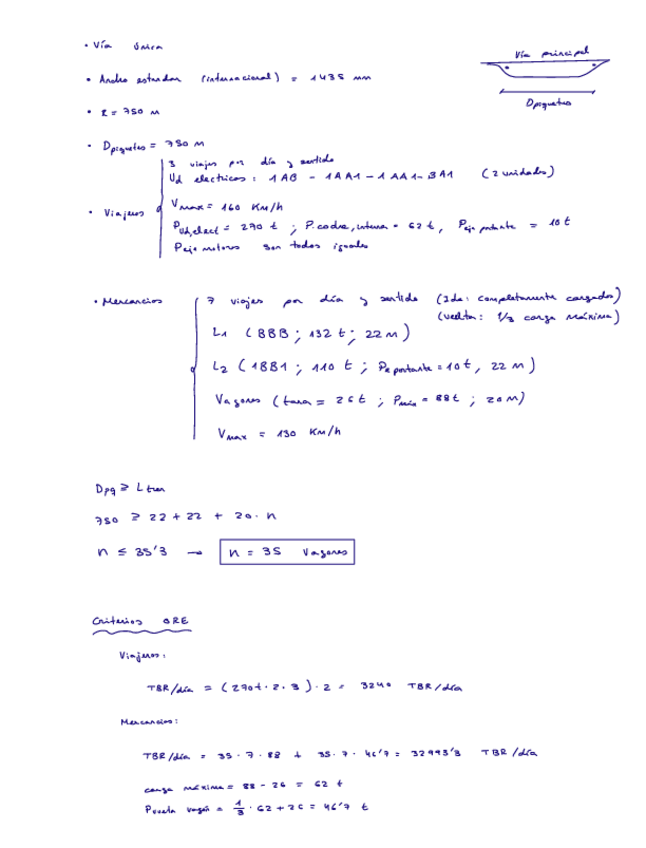 • Vía única
Vía principal
• Ancho estandar (internacional) = 1435 mm
• R = 750 m
Dpiquetes
• Dpiquetes = 750 m
• Viajeros
3 viajes por día y sentido
Ud electricos: 1AB - 1AA1 - 1AA1 - BA1 (2 unidades)
Vmax = 160 Km/h
Pud,elect = 270 t ; P.coche,interm = 62 t, Peje portante = 10 t
Peje motores son todos iguales
• Mercancías
7 viajes por día y sentido (Ida: completamente cargados)
(vuelta: 1/3 carga máxima)
L1 (BBB ; 132 t ; 22 m)
L2 (1BB1 ; 110 t ; Pe portante = 10 t, 22 m)
Vagones (tara = 26 t ; Pmáx = 88 t ; 20 m)
Vmax = 130 Km/h
Dpq ≥ L tren
750 ≥ 22 + 22 + 20 · n
n ≤ 35'3 → n = 35 Vagones
Criterios ORE
Viajeros:
TBR/día = (270t · 2 · 3) · 2 = 3240 TBR/día
Mercancías:
TBR/día = 35 · 7 · 88 + 35 · 7 · 46'7 = 32993'3 TBR/día
carga máxima = 88 - 26 = 62 t
Pvuelta vagón = 1/3 · 62 + 26 = 46'7 t